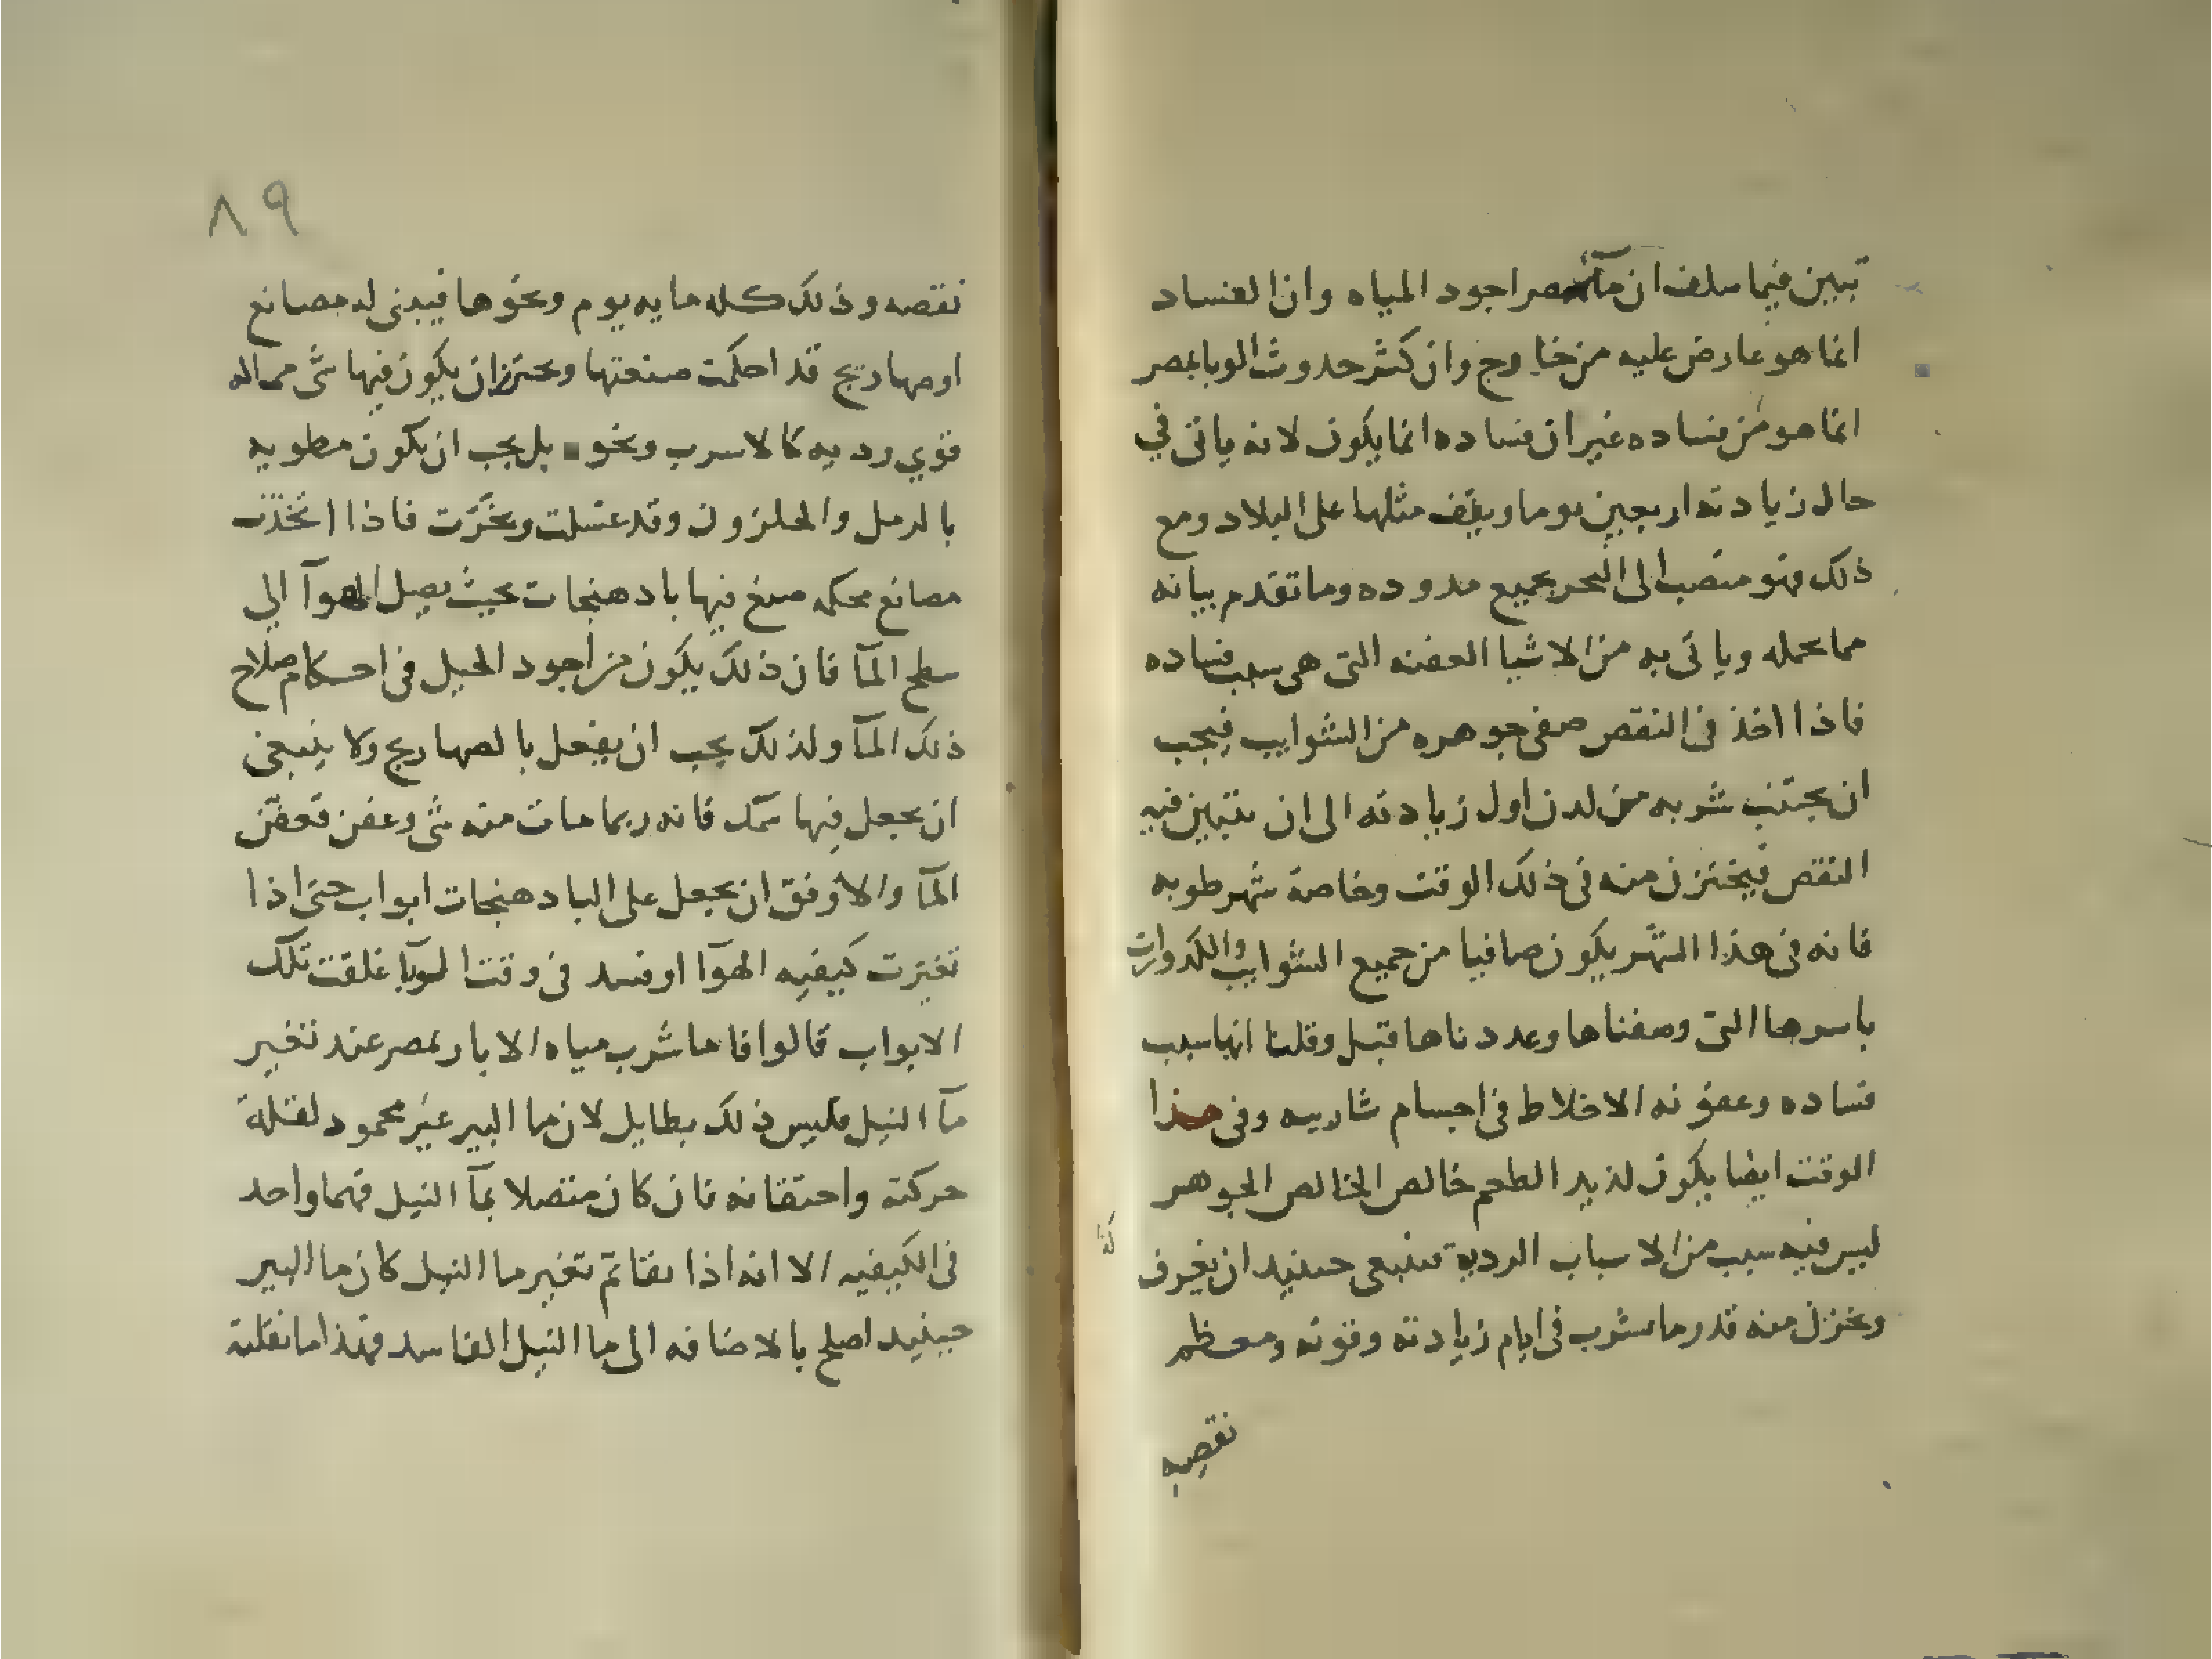 تبين فيما سلف ان مآ مصر اجود المياه وان الفساد
انما هو عارض عليه من خارج وان كثر حدوث الوبا بمصر
انما هو من فساده غير ان فساده انما يكون لانه ياتى في
حال زيادته اربعين يوما ويقف مثلها على البلاد ومع
ذلك فهو منصب الى البحر بجميع مدوده وما تقدم بيانه
مما يحمله وياتى به من الاشيا العفنه التى هى سبب فساده
فاذا اخذ فى النقص صفى جوهره من الشوايب فيجب
ان يجتنب شربه من لدن اول زيادته الى ان يتبين فيه
النقص فيختزن منه فى ذلك الوقت وخاصة شهر طوبه
فانه فى هذا الشهر يكون صافيا من جميع الشوايب والكدورات
باسرها التى وصفناها وعددناها قبل وقلنا انها سبب
فساده وعفونه الاخلاط فى اجسام شاربيه وفى هذا
الوقت ايضا يكون لذيد الطعم خالص الخالص الجوهر
كذا
ليس فيه سبب من الاسباب الردية فينبغى حينيد ان يغرف
ويخزن منه قدر ما يشرب فى ايام زيادته وقوته ومعظم
نقصه
٨٩
نقصه وذلك كله مايه يوم ونحوها فيبنى له مصانع
او صهاريج قد احكمت صنعتها ويحترز ان يكون فيها شى مما له
قوي رديه كالاسرب ونحو بل يجب ان يكون مطويه
بالرمل والحلزون وقد غسلت وبخرت فاذا اتخذت
مصانع محكمه صنع فيها بادهنجات بحيث يصل الهوآ الي
سطح المآ فان ذلك يكون من اجود الحيل فى احكام صلاح
ذلك المآ ولذلك يجب ان يفعل بالصهاريج ولا ينبغى
ان يجعل فيها سمك فانه ربما مات منه شى وعفن فعفن
المآ والاوفق ان يجعل على البادهنجات ابواب حتى اذا
تغيرت كيفيه الهوآ او فسد فى وقت الوبآ غلقت تلك
الابواب قالوا فاما شرب مياه الابار بمصر عند تغير
مآ النيل فليس ذلك بطايل لان ما البير غير محمود لقلة
حركته واحتقانه فان كان متصلا بمآ النيل فهما واحد
فى الكيفيه الا انه اذا تفاقم تغير ما النيل كان ما البير
حينيد اصلح بالاضافه الى ما النيل الفاسد فهذا ما نقلته